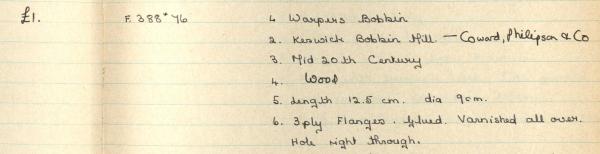 £1. F. 388*76 1. Warpers Bobbin
2. Keswick Bobbin Mill — Coward, Philipson & Co
3. Mid 20th Century
4. Wood
5. Length 12.5 cm. dia 9cm.
6. 3ply Flanges. Glued. Varnished all over.
Hole right through.